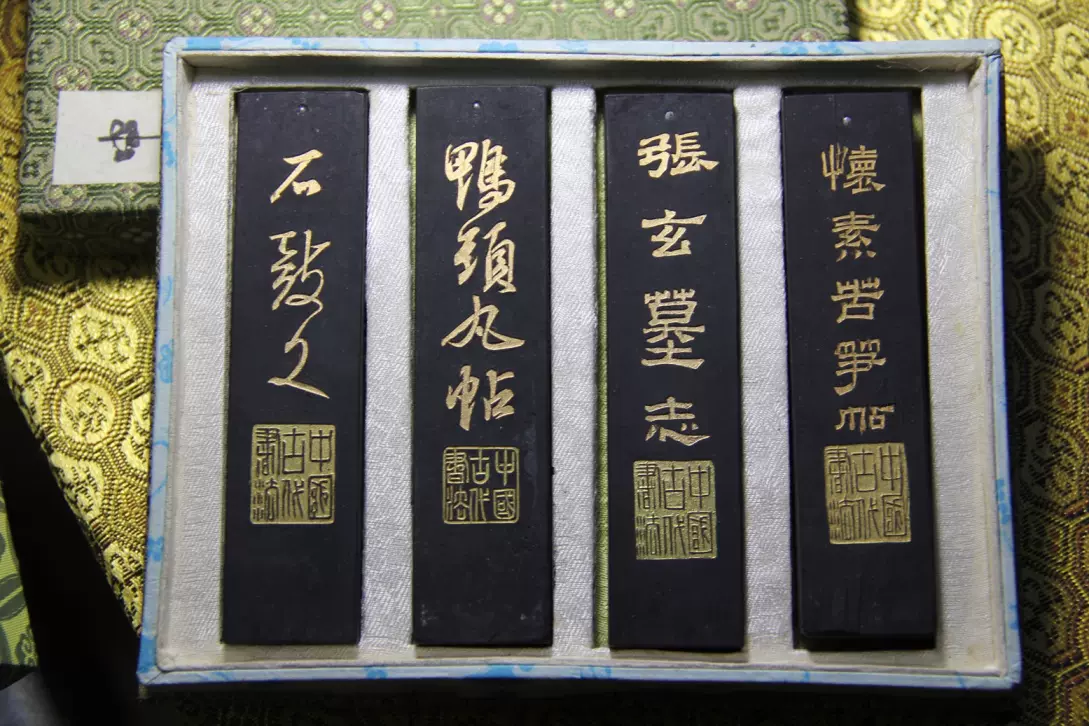 石鼓文
中國古代書法
鴨頭丸帖
中國古代書法
張玄墓志
中國古代書法
懷素苦笋帖
中國古代書法